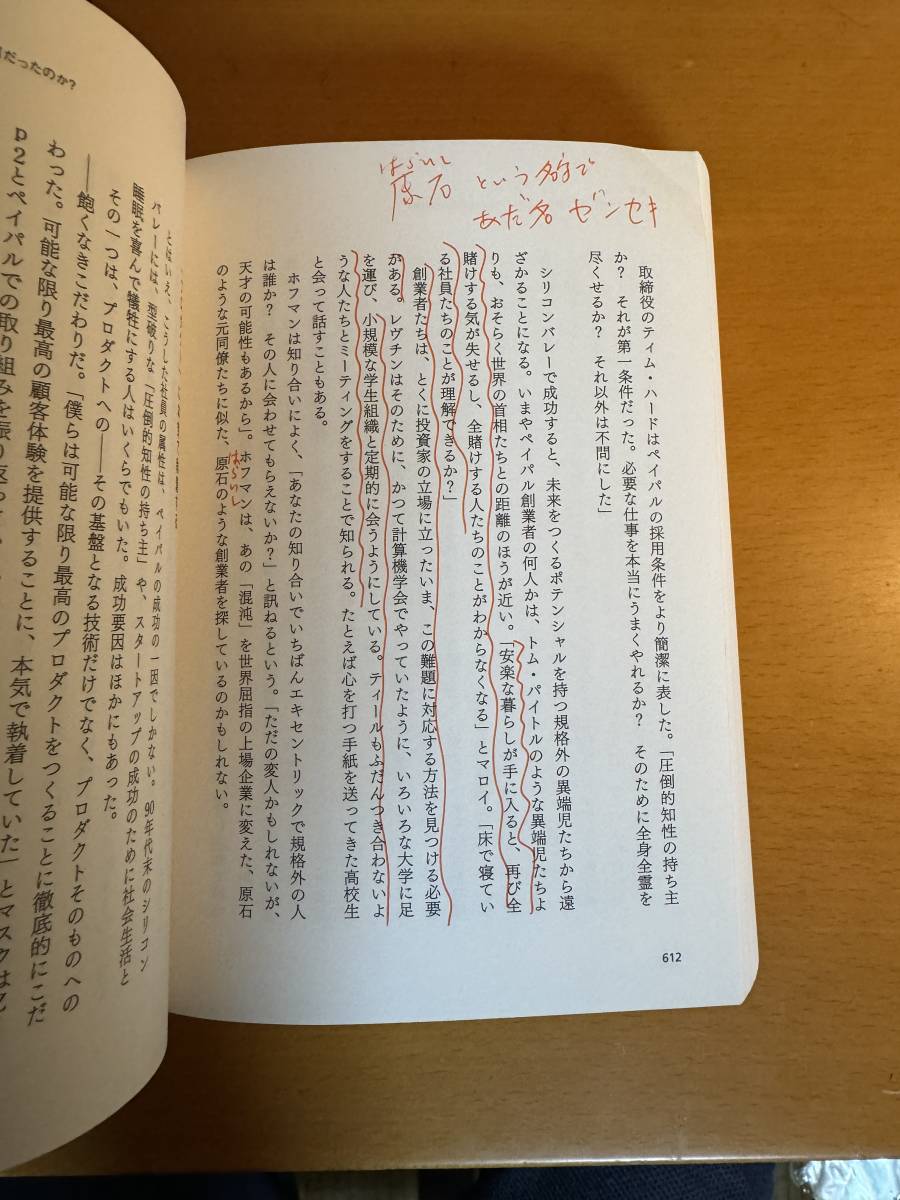 はらいし
原石 という名字で
あだ名 ゲンセキ
取締役のティム・ハードはペイパルの採用条件をより簡潔に表した。「圧倒的知性の持ち主
か？　それが第一条件だった。必要な仕事を本当にうまくやれるか？　そのために全身全霊を
尽くせるか？　それ以外は不問にした」
シリコンバレーで成功すると、未来をつくるポテンシャルを持つ規格外の異端児たちから遠
ざかることになる。いまやペイパル創業者の何人かは、トム・パイトルのような異端児たちよ
りも、おそらく世界の首相たちとの距離のほうが近い。「安楽な暮らしが手に入ると、再び全
賭けする気が失せるし、全賭けする人たちのことがわからなくなる」とマロイ。「床で寝てい
る社員たちのことが理解できるか？」
創業者たちは、とくに投資家の立場に立ったいま、この難題に対応する方法を見つける必要
がある。レヴチンはそのために、かつて計算機学会でやっていたように、いろいろな大学に足
を運び、小規模な学生組織と定期的に会うようにしている。ティールもふだんつき合わないよ
うな人たちとミーティングをすることで知られる。たとえば心を打つ手紙を送ってきた高校生
と会って話すこともある。
ホフマンは知り合いによく、「あなたの知り合いでいちばんエキセントリックで規格外の人
は誰か？　その人に会わせてもらえないか？」と訊ねるという。「ただの変人かもしれないが、
天才の可能性もあるから」。ホフマンは、あの「混沌」を世界屈指の上場企業に変えた、原石
はらいし
のような元同僚たちに似た、原石のような創業者を探しているのかもしれない。
612
だったのか？
とはいえ、こうした社員の属性は、ペイパルの成功の一因でしかない。90年代末のシリコン
バレーには、型破りな「圧倒的知性の持ち主」や、スタートアップの成功のために社会生活と
睡眠を喜んで犠牲にする人はいくらでもいた。成功要因はほかにもあった。
その一つは、プロダクトへの――その基盤となる技術だけでなく、プロダクトそのものへの
――飽くなきこだわりだ。「僕らは可能な限り最高のプロダクトをつくることに徹底的にこだ
わった。可能な限り最高の顧客体験を提供することに、本気で執着していた」とマスクは
P2とペイパルでの取り組みを振り返